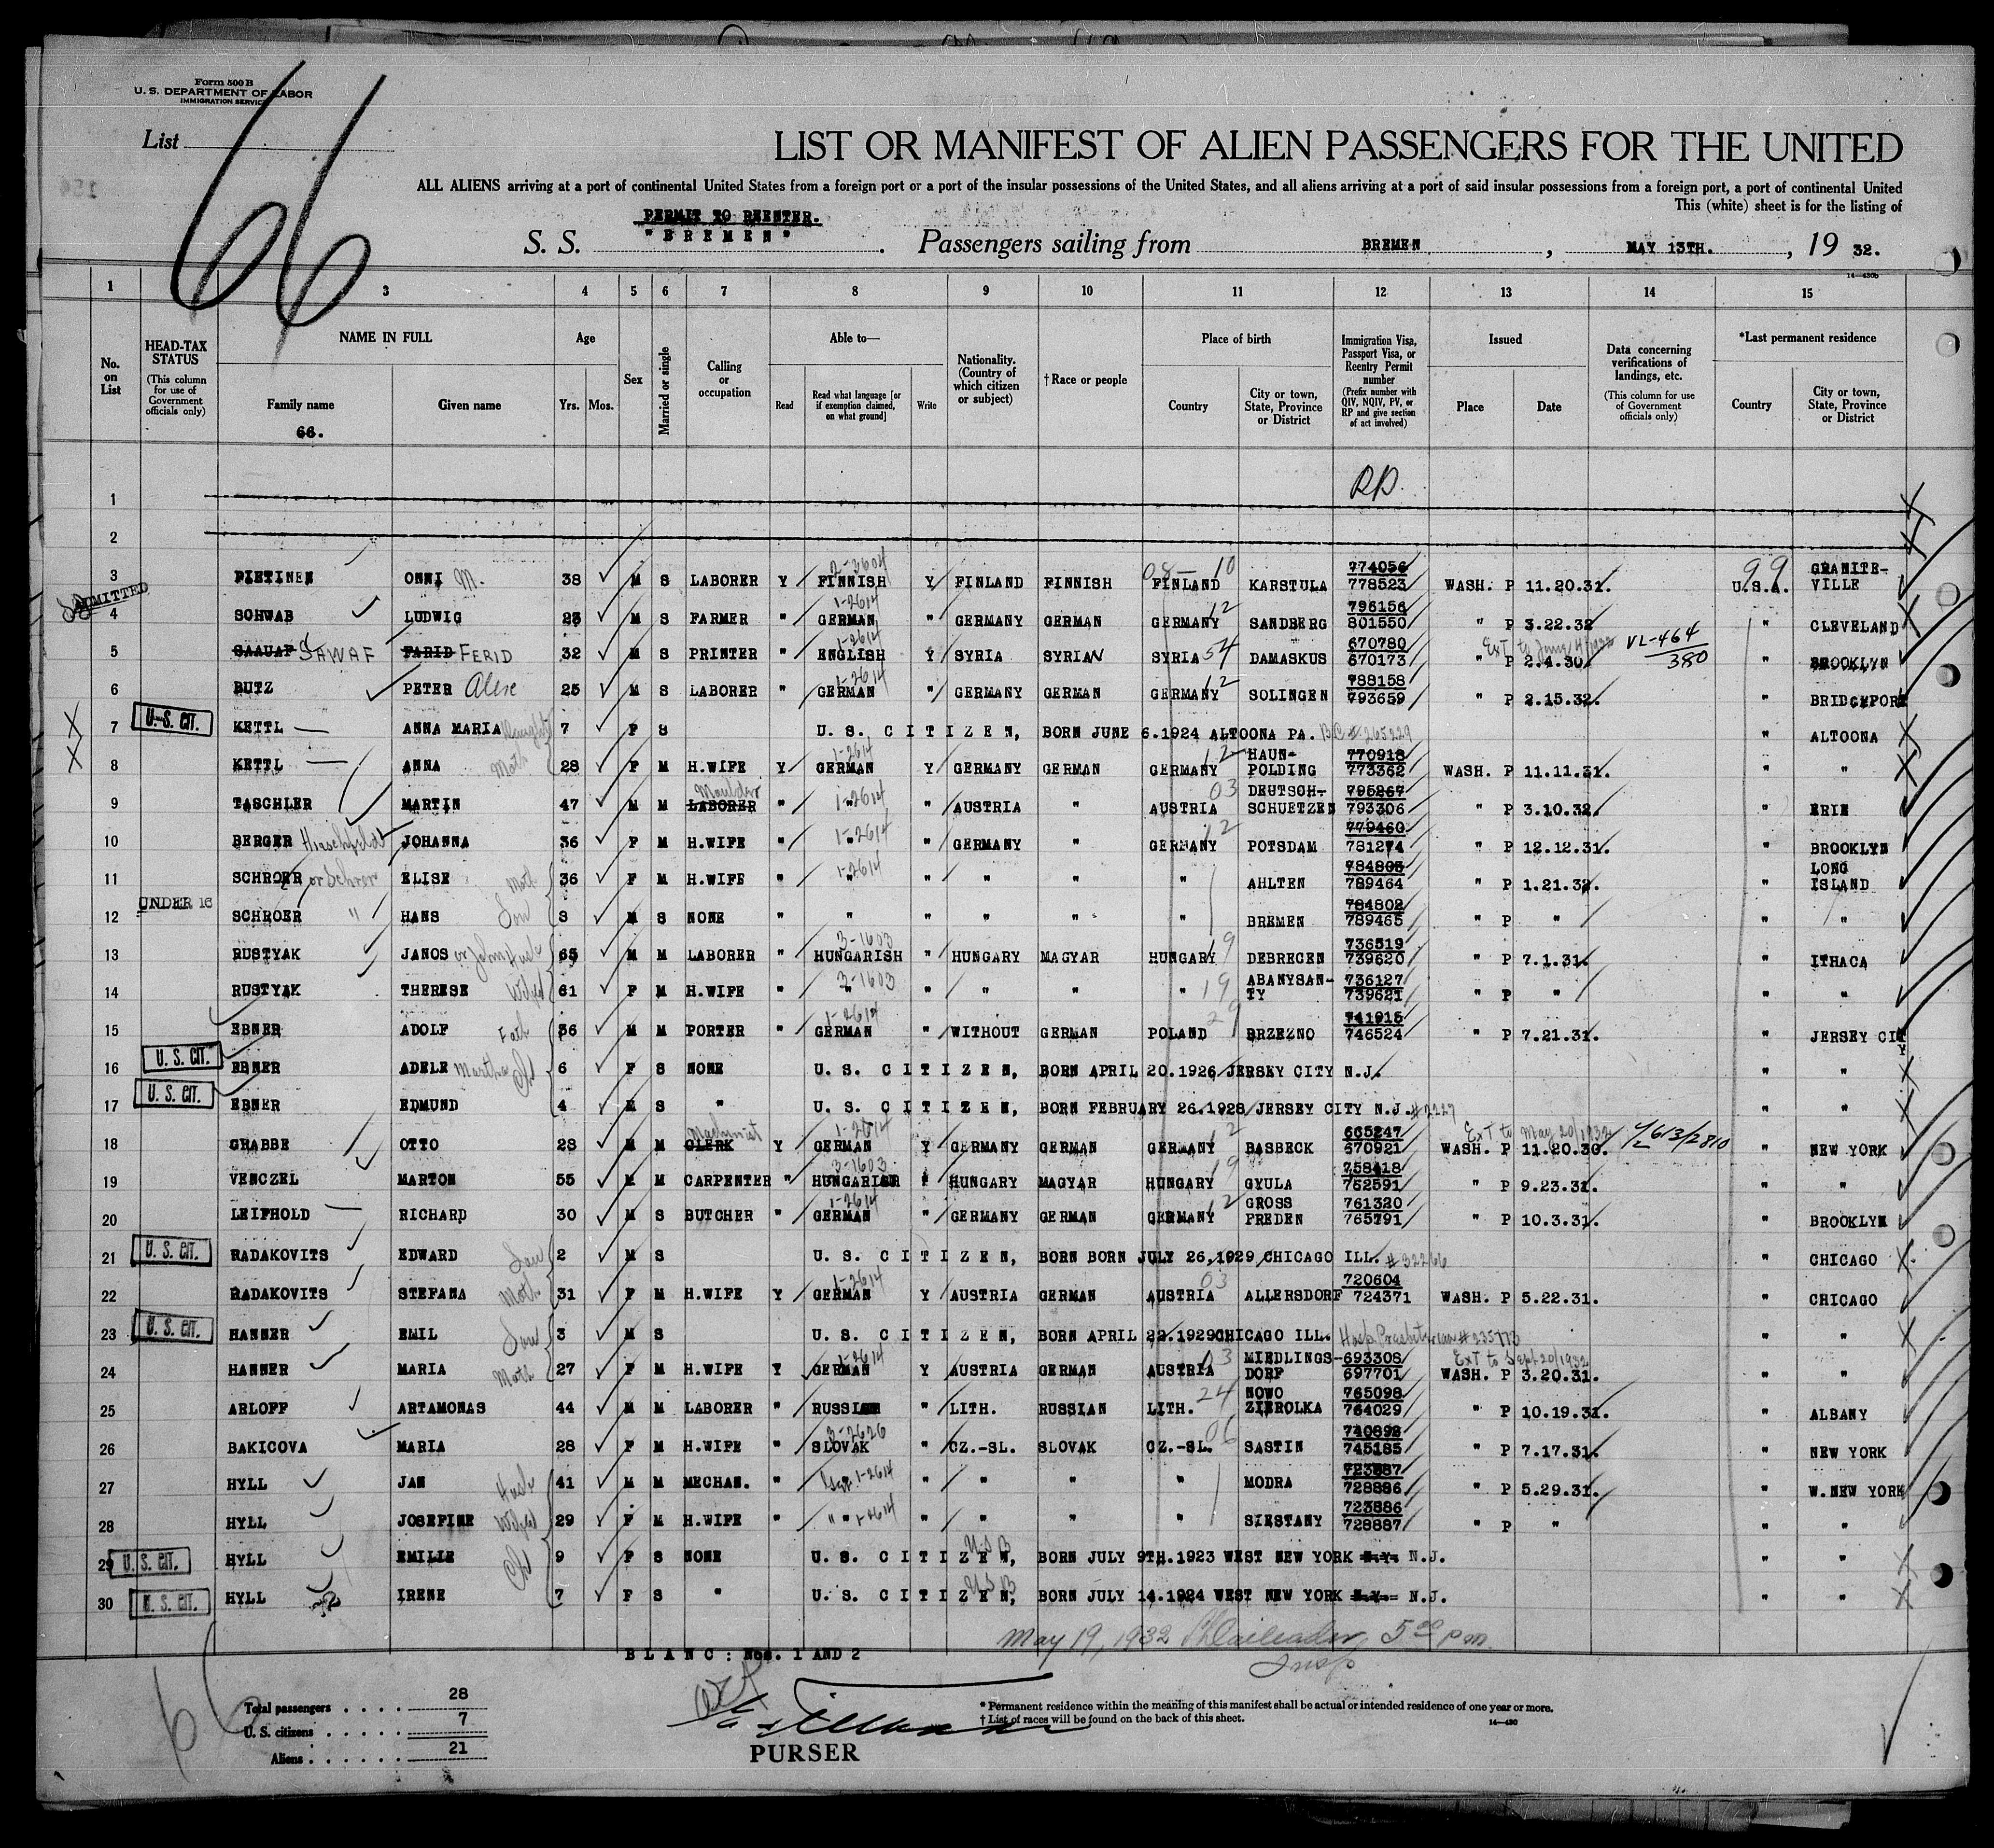 Form 500 B
U. S. DEPARTMENT OF LABOR
IMMIGRATION SERVICE
66
List
LIST OR MANIFEST OF ALIEN PASSENGERS FOR THE UNITED
ALL ALIENS arriving at a port of continental United States from a foreign port or a port of the insular possessions of the United States, and all aliens arriving at a port of said insular possessions from a foreign port, a port of continental United
This (white) sheet is for the listing of
PERMIT TO REENTER.
S. S. "BREMEN". Passengers sailing from BREMEN, MAY 13TH., 19 32.
14—430b
1 3 4 5 6 7 8 9 10 11 12 13 14 15
No. on List
HEAD-TAX STATUS (This column for use of Government officials only)
NAME IN FULL Family name Given name
66.
Age Yrs. Mos.
Sex
Married or single
Calling or occupation
Able to— Read Read what language [or if exemption claimed, on what ground] Write
Nationality. (Country of which citizen or subject)
†Race or people
Place of birth Country City or town, State, Province or District
Immigration Visa, Passport Visa, or Reentry Permit number (Prefix number with QIV, NQIV, PV, or RP and give section of act involved)
Issued Place Date
Data concerning verifications of landings, etc. (This column for use of Government officials only)
*Last permanent residence Country City or town, State, Province or District
1
2
3 PIETINEN ONNI M. 38 M S LABORER Y 2-3604 FINNISH Y FINLAND FINNISH 08-10 FINLAND KARSTULA 774056 778523 WASH. P 11.20.31. 99 U.S.A. GRANITE-VILLE
ADMITTED
4 SCHWAB LUDWIG 23 M S FARMER " 1-2614 GERMAN " GERMANY GERMAN GERMANY 12 SANDBERG 796156 801550 " P 3.22.32 " CLEVELAND
5 SAAUAF SAWAF FARID FERID 32 M S PRINTER " 1-2614 ENGLISH Y SYRIA SYRIAN SYRIA 54 DAMASKUS 670780 670173 Ext to June 14/1932 " P 2.4.30. VL-464/380 " BROOKLYN
6 RUTZ PETER 25 M S LABORER " 1-2614 GERMAN " GERMANY GERMAN GERMANY 12 SOLINGEN 788158 793659 " P 2.15.32. " BRIDGEPORT
7 U.S. CIT. KETTL ANNA MARIA Daught 7 F S U. S. CITIZEN, BORN JUNE 6.1924 ALTOONA PA. BC # 265229 " ALTOONA
8 KETTL ANNA Moth 28 F M H.WIFE Y 1-2614 GERMAN Y GERMANY GERMAN GERMANY 12 HAUN-POLDING 770918 773362 WASH. P 11.11.31. " "
9 TASCHLER MARTIN 47 M M LABORER Moulder " 1-2614 " " AUSTRIA " AUSTRIA 03 DEUTSCH-SCHUETZEN 795267 793306 " P 3.10.32. " ERIE
10 BERGER Hirschfeldt JOHANNA 36 F M H.WIFE " 1-2614 " " GERMANY " GERMANY 12 POTSDAM 779460 781274 " P 12.12.31. " BROOKLYN
11 SCHROER or Schrer ELISE Moth 36 F M H.WIFE " 1-2614 " " " " " AHLTEN 784803 789464 " P 1.21.32. " LONG ISLAND
UNDER 16
12 SCHROER " HANS Son 8 M S NONE " " " " " " BREMEN 784802 789465 " P " " "
13 RUSTYAK JANOS or John Husb 65 M M LABORER " 3-1603 HUNGARISH " HUNGARY MAGYAR HUNGARY 19 DEBRECEN 736519 739620 " P 7.1.31. " ITHACA
14 RUSTYAK THERESE Wife 61 F M H.WIFE " 3-1603 " " " " " 19 ABANYSAN-TY 736127 739621 " P " " "
15 EBNER ADOLF Fath 36 M M PORTER " 1-2614 GERMAN " WITHOUT GERMAN POLAND 29 BRZEZNO 741915 746524 " P 7.21.31. " JERSEY CITY
16 U. S. CIT. EBNER ADELE Martha Ch 6 F S NONE U. S. CITIZEN, BORN APRIL 20.1926 JERSEY CITY N.J. " "
17 U. S. CIT. EBNER EDMUND 4 M S " U. S. CITIZEN, BORN FEBRUARY 26.1928 JERSEY CITY N.J. #2227 " "
18 GRABBE OTTO 28 M M CLERK Machinist Y 1-2614 GERMAN Y GERMANY GERMAN GERMANY 12 BASBECK 665247 670921 Ext to May 20/1932 WASH. P 11.20.30. " NEW YORK
19 VENCZEL MARTON 55 M M CARPENTER " 3-1603 HUNGARISH " HUNGARY MAGYAR HUNGARY 19 GYULA 758418 762591 " P 9.23.31. " "
20 LEIFHOLD RICHARD 30 M S BUTCHER " 1-2614 GERMAN " GERMANY GERMAN GERMANY 12 GROSS PREDEN 761320 765791 " P 10.3.31. " BROOKLYN
21 U. S. CIT. RADAKOVITS EDWARD Son 2 M S U. S. CITIZEN, BORN BORN JULY 26,1929 CHICAGO ILL. #32266 " CHICAGO
22 RADAKOVITS STEFANA Moth. 31 F M H.WIFE Y 1-2614 GERMAN Y AUSTRIA GERMAN AUSTRIA 03 ALLERSDORF 720604 724371 WASH. P 5.22.31. " CHICAGO
23 U. S. CIT. HANNER EMIL Son 3 M S U. S. CITIZEN, BORN APRIL 22.1929 CHICAGO ILL. " "
24 HANNER MARIA Moth 27 F M H.WIFE Y 1-2614 GERMAN Y AUSTRIA GERMAN AUSTRIA 03 MIEDLINGS-DORF 693308 697701 Ext to Sept 20/1932 WASH. P 3.20.31. " "
25 ARLOFF ARTAMONAS 44 M M LABORER " RUSSIAN " LITH. RUSSIAN LITH. 24 NOWO ZIEROLKA 765098 764029 " P 10.19.31. " ALBANY
26 BAKICOVA MARIA 28 F M H.WIFE " 3-2626 SLOVAK " CZ.-SL. SLOVAK CZ.-SL. 06 SASTIN 740898 745185 " P 7.17.31. " NEW YORK
27 HYLL JAN Husb 41 M M MECHAN. " 1-2614 " " " " MODRA 723887 728886 " P 5.29.31. " W. NEW YORK
28 HYLL JOSEFINE Wife 29 F M H.WIFE " " " " " " SIESTANY 723886 728887 " P " " "
29 U. S. CIT. HYLL EMILIE Ch 9 F S NONE U. S. CITIZEN, USB BORN JULY 9TH.1923 WEST NEW YORK N.Y. N.J. " "
30 U. S. CIT. HYLL IRENE 7 F S " U. S. CITIZEN, USB BORN JULY 14.1924 WEST NEW YORK N.Y. N.J. " "
May 19, 1932 5 00 pm
Insp
BLANC: Nos. 1 AND 2
66
Total passengers . . . . 28
U. S. citizens . . . . . 7
Aliens . . . . . . 21
PURSER
* Permanent residence within the meaning of this manifest shall be actual or intended residence of one year or more.
† List of races will be found on the back of this sheet.
14—430